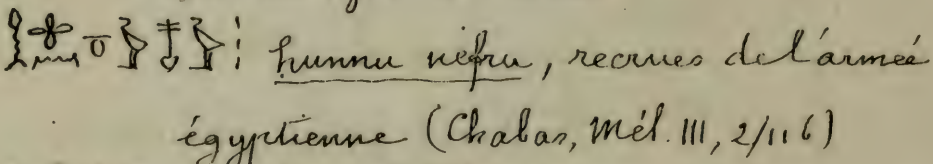 hunnu nefru, recrues de l'armée
égyptienne (Chabas, Mél. III, 2/116)